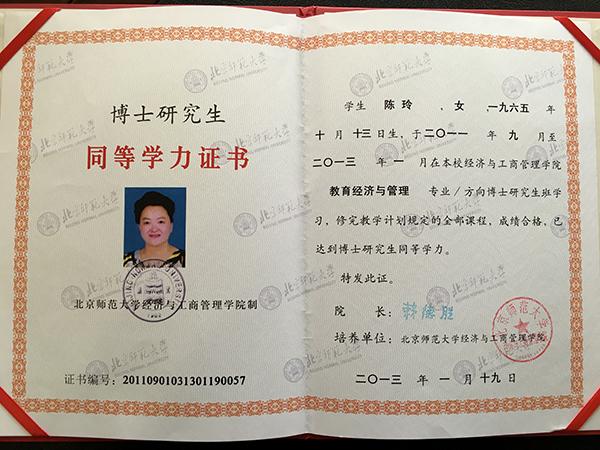 博士研究生
同等学力证书
北京师范大学经济与工商管理学院制
证书编号：20110901031301190057
学生 陈玲 ，女 一九六五 年
十 月 十三 日生，于 二〇一一 年 九 月至
二〇一三 年 一 月在本校经济与工商管理学院
教育经济与管理 专业／方向博士研究生班学
习，修完教学计划规定的全部课程，成绩合格，已
达到博士研究生同等学力。
特发此证。
院 长：
培养单位：北京师范大学经济与工商管理学院
二〇一三 年 一 月 十九 日